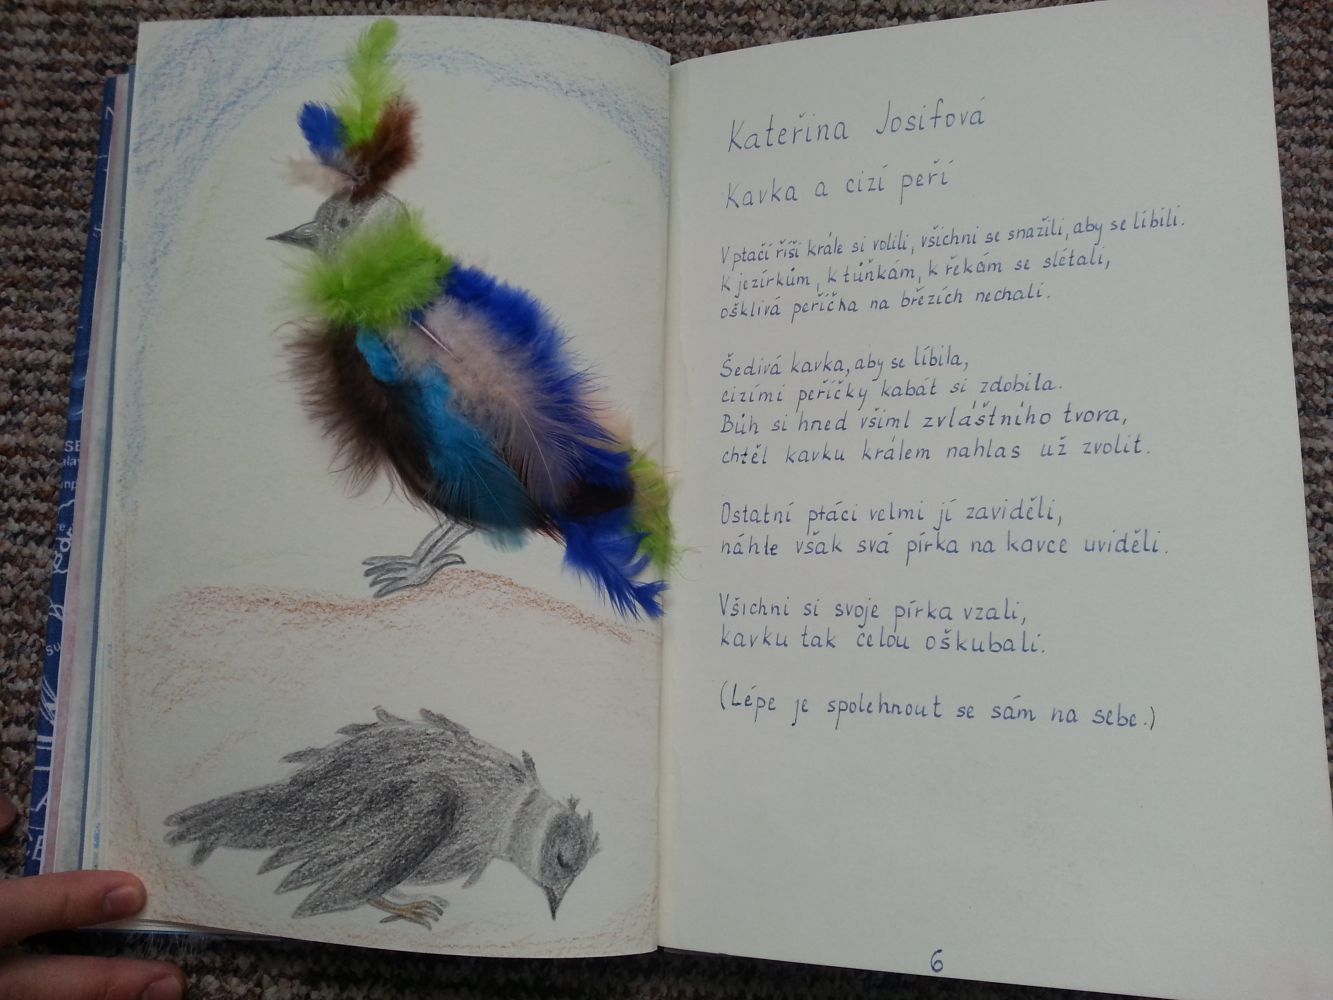 Kateřina Josifová
Kavka a cizí peří
V ptačí říši krále si volili, všichni se snažili, aby se líbili.
K jezírkům, k tůňkám, k řekám se slétali,
ošklivá peříčka na březích nechali.
Šedivá kavka, aby se líbila,
cizími peříčky kabát si zdobila.
Bůh si hned všiml zvláštního tvora,
chtěl kavku králem nahlas už zvolit.
Ostatní ptáci velmi jí zaviděli,
náhle však svá pírka na kavce uviděli.
Všichni si svoje pírka vzali,
kavku tak celou oškubali.
(Lépe je spolehnout se sám na sebe.)
6